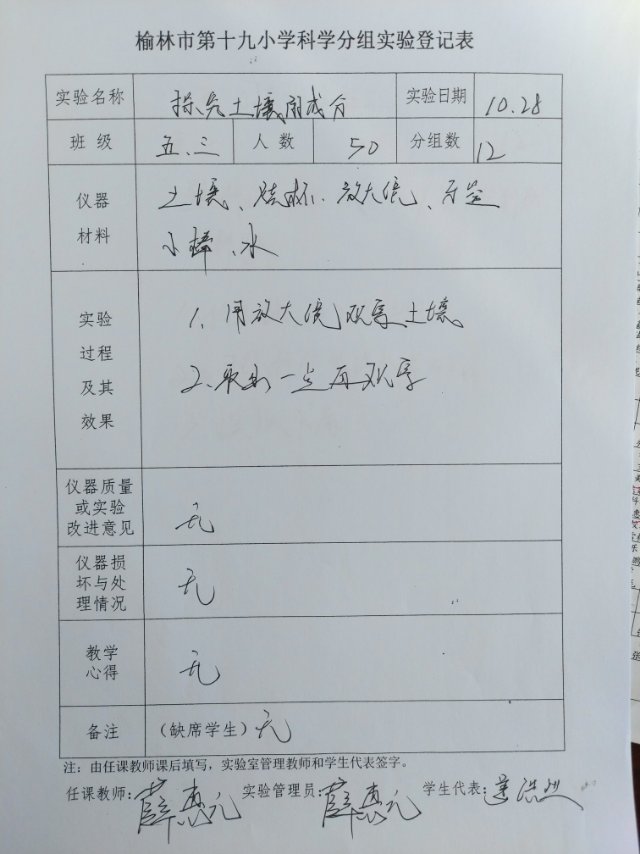 榆林市第十九小学科学分组实验登记表
实验名称 探究土壤的成分 实验日期 10.28
班 级 五.三 人 数 50 分组数 12
仪器材料 土壤、烧杯、放大镜、牙签
小棒、水
实验过程及其效果 1、用放大镜观察土壤
2、取出一点再观察
仪器质量
或实验
改进意见 无
仪器损
坏与处
理情况 无
教学
心得 无
备注 (缺席学生) 无
注：由任课教师课后填写，实验室管理教师和学生代表签字。
任课教师: 薛惠元 实验管理员: 薛惠元 学生代表: